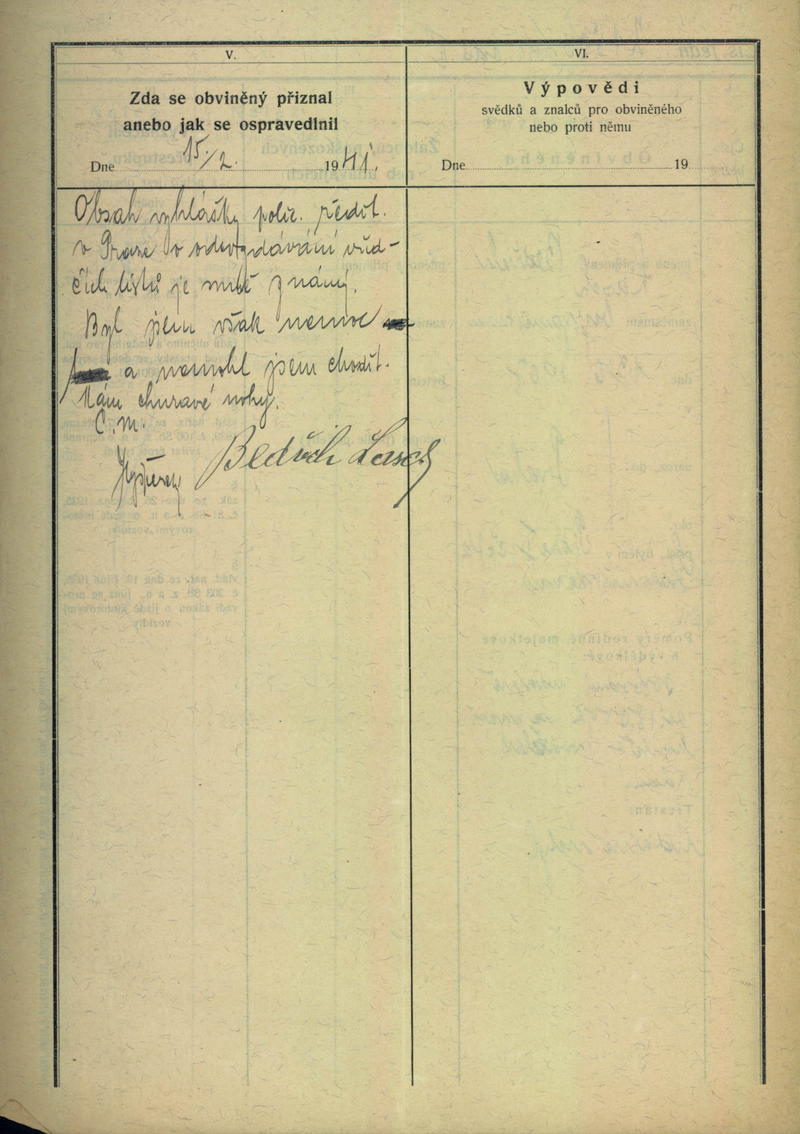 V.
Zda se obviněný přiznal
anebo jak se ospravedlnil
Dne 15/2. 1941.
VI.
Výpovědi
svědků a znalců pro obviněného
nebo proti němu
Dne 19
Obsah vyhlášky polic. ředit.
v Praze o odevzdávání řid-
čích listů je mně známý.
Byl jsem však nemoc
a nemohl jsem chodit.
Mám churavé nohy.
Č. m.
Bedřich